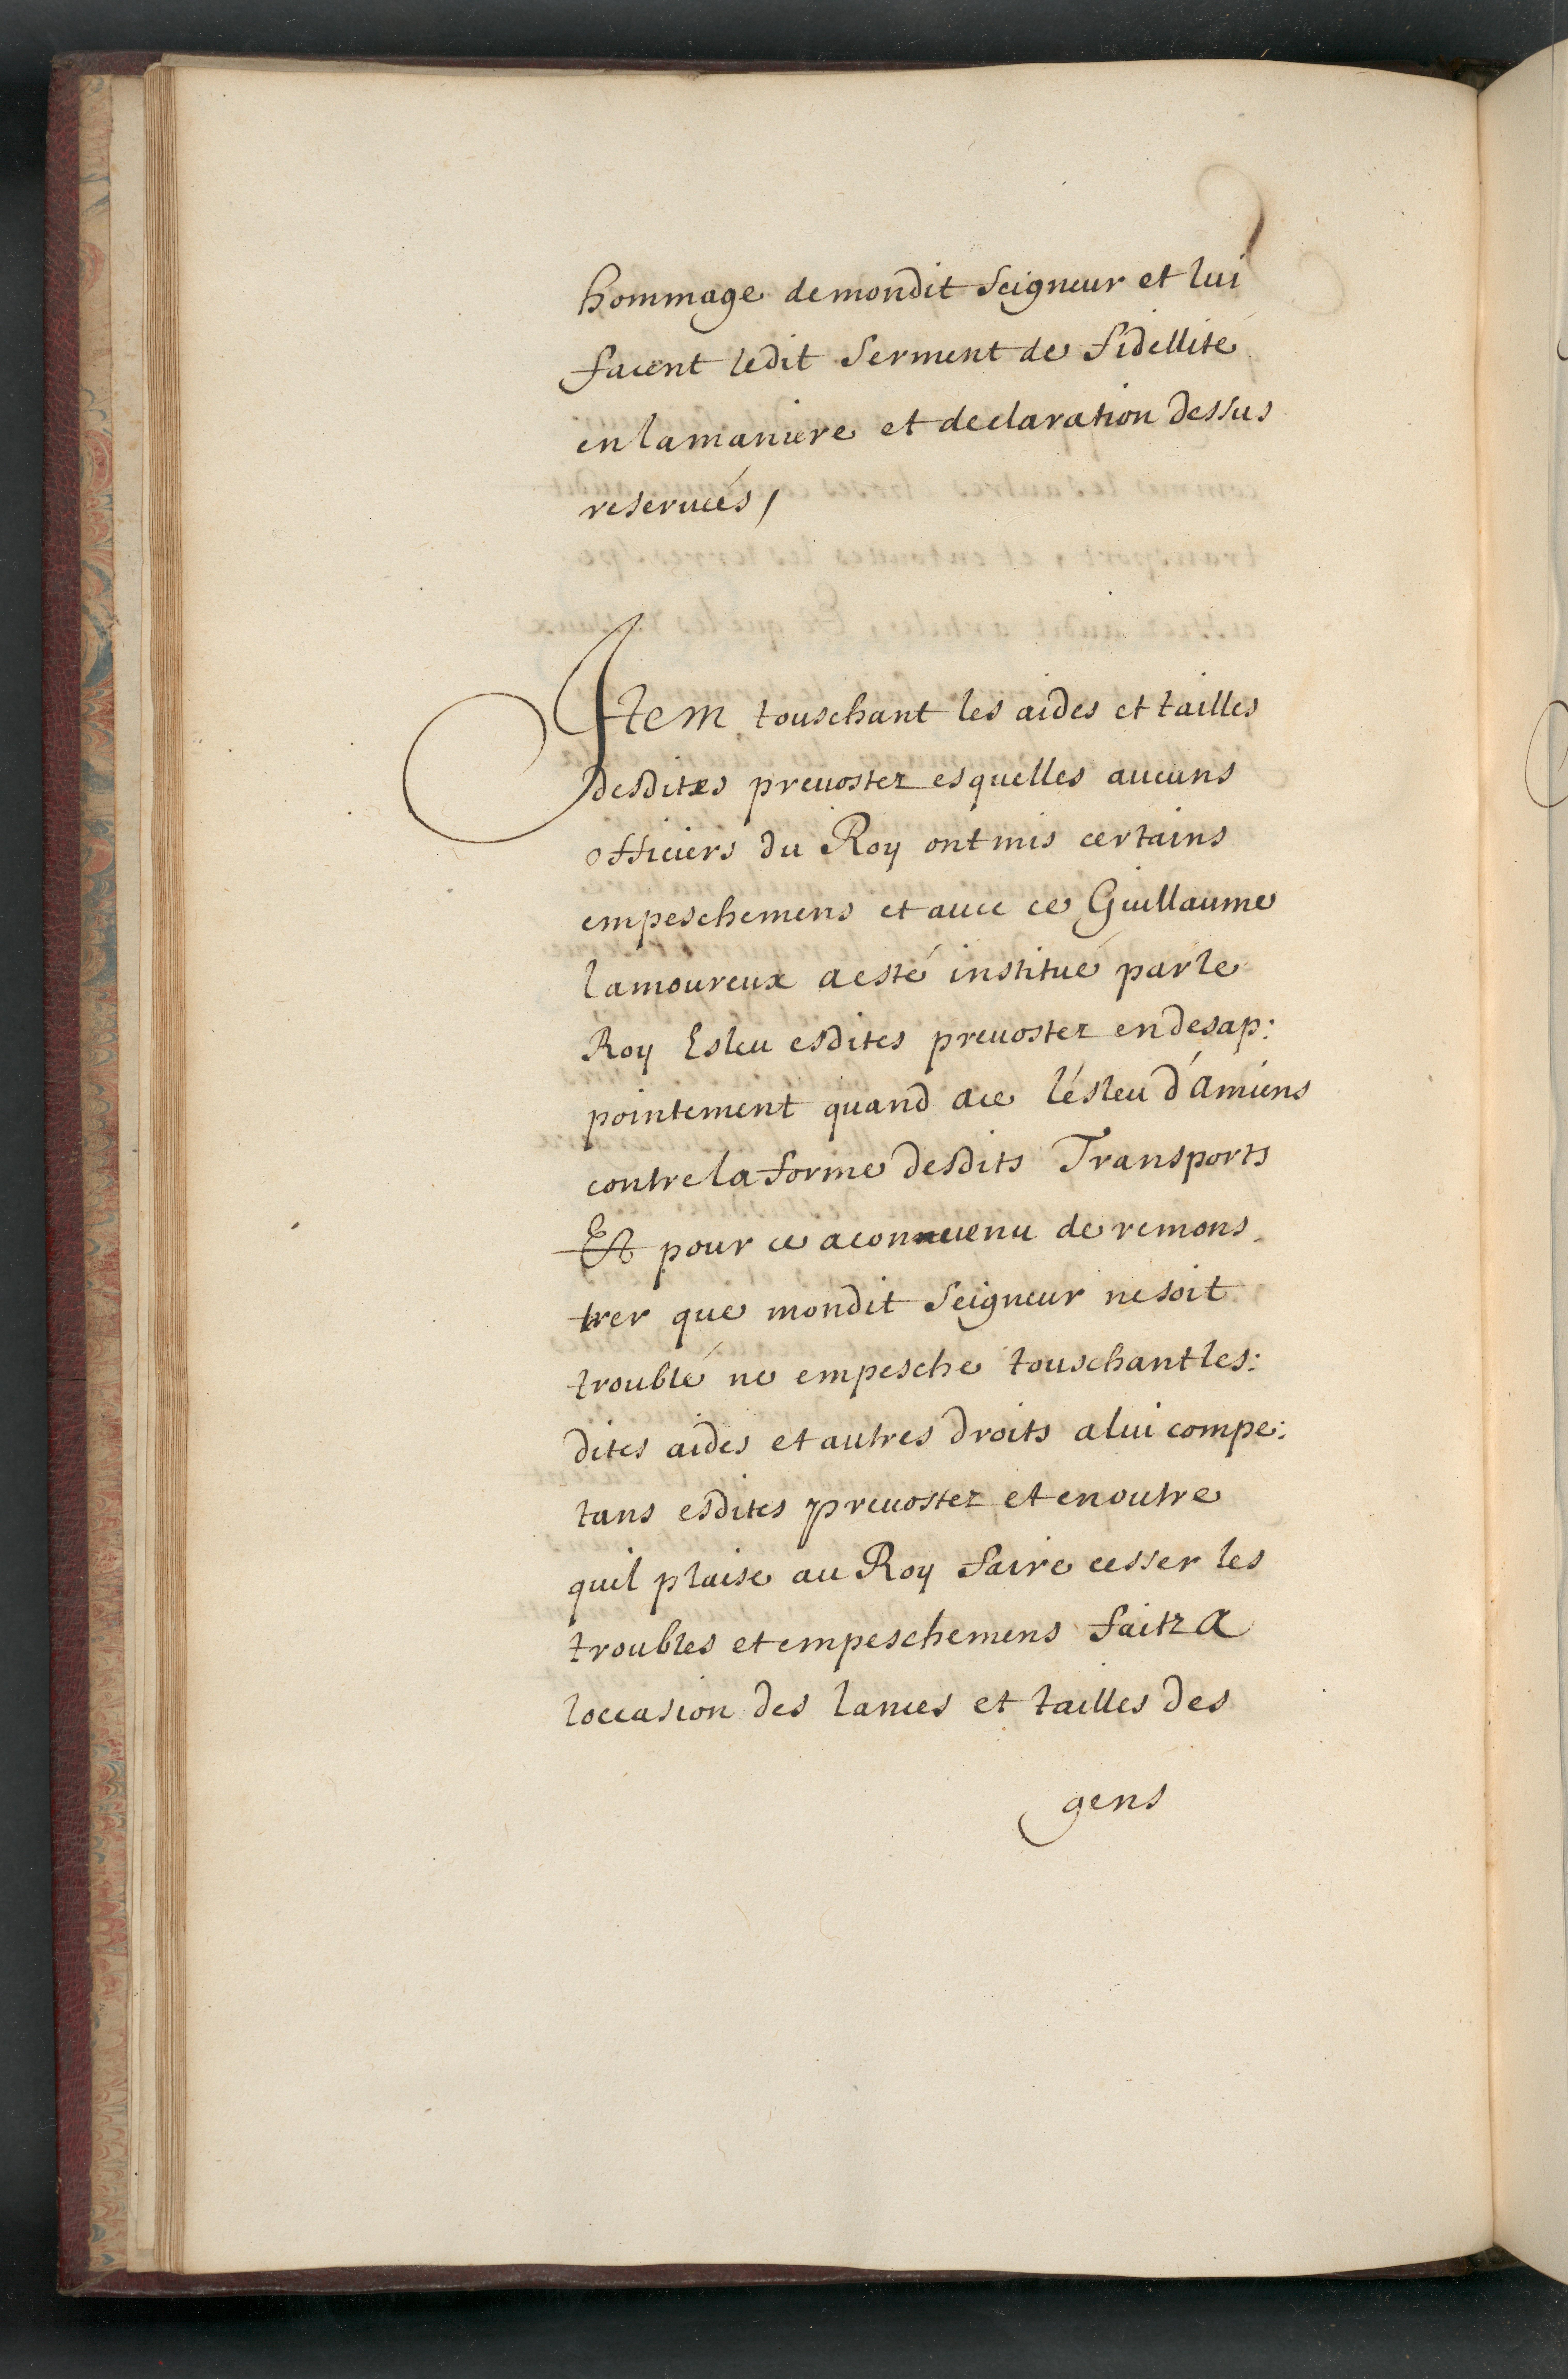 hommage de mondit Seigneur et lui
facent ledit Serment de fidellité
en la maniere et declaration dessus
reseruées /
Item touschant les aides et tailles
desdites preuostez esquelles aucuns
officiers du Roy ont mis certains
empeschemens et auec ce Guillaume
lamoureux a esté institué par le
Roy Esleu esdites preuostez en desap:
pointement quand a ce l'ésleu d'amiens
contre la forme desdits Transports
Et pour ce a conuenu de remons.
trer que mondit Seigneur ne soit
troublé ne empesche touschant les:
dites aides et autres droits a lui compe:
tans esdites preuostez et en outre
quil plaise au Roy faire cesser les
troubles et empeschemens faitz a
loccasion des lances et tailles des
gens